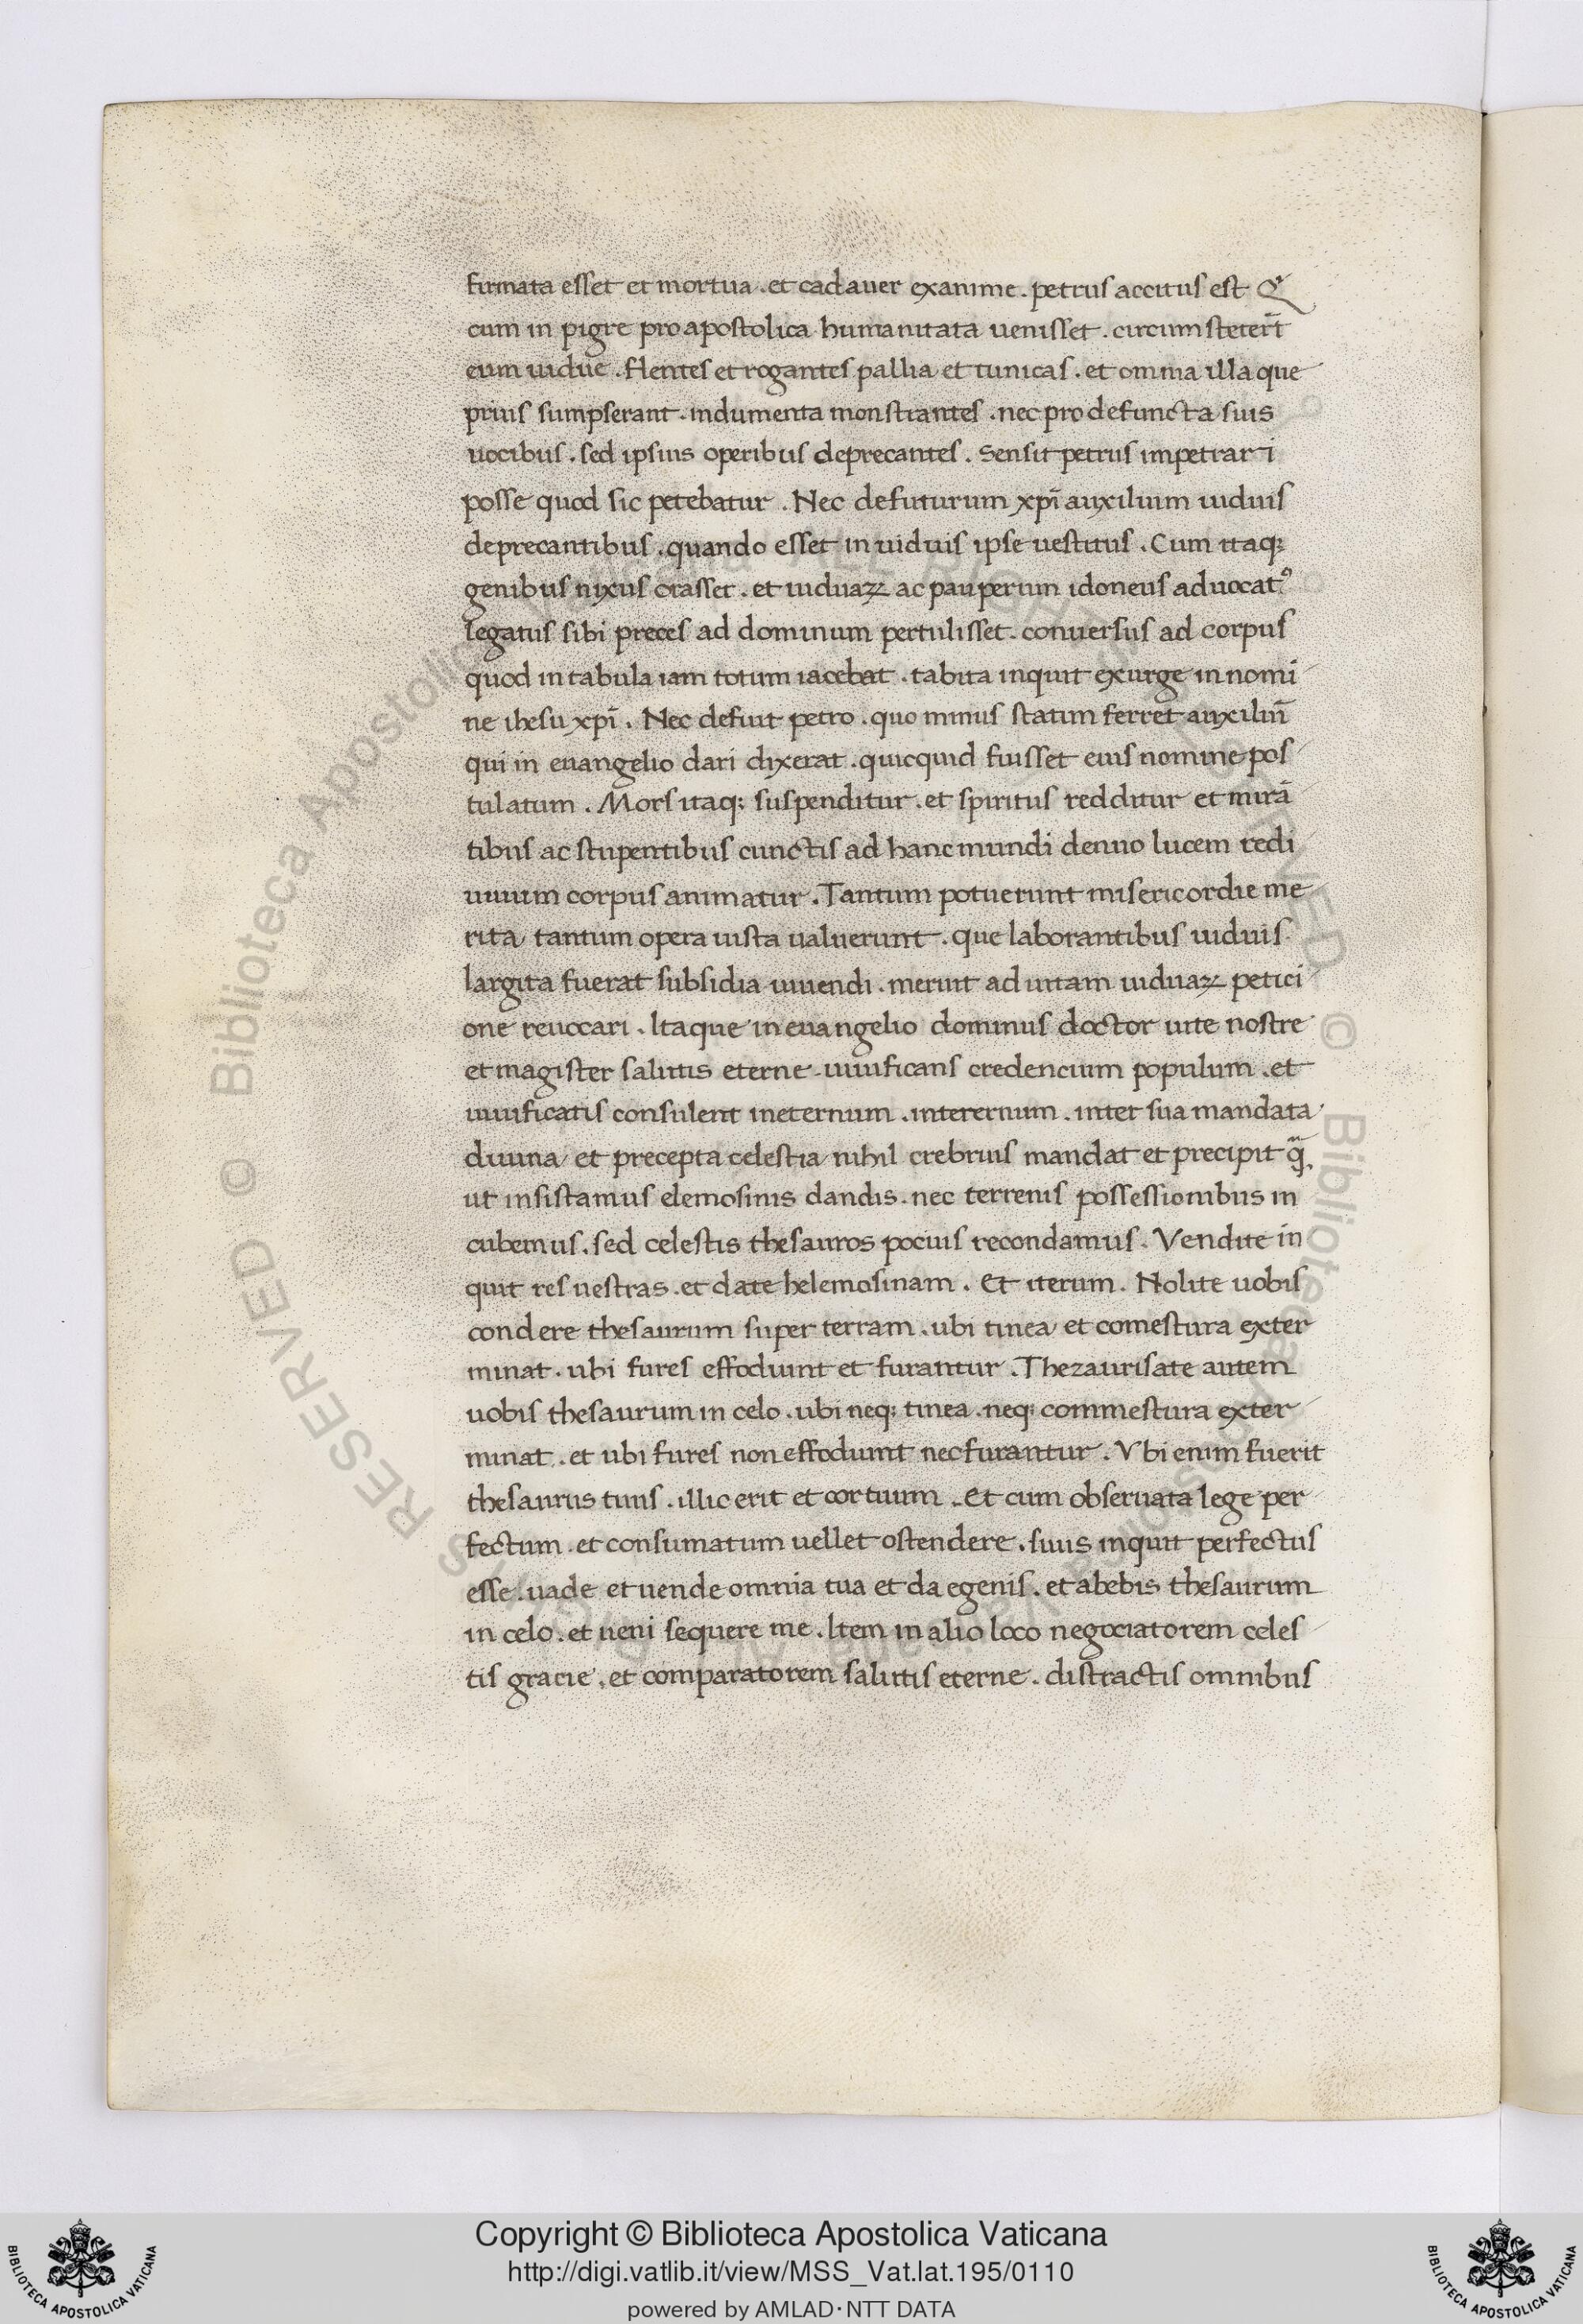 firmata esset et mortua . et cadauer exanime . petrus accitus est Q
cum in pigre pro apostolica humanitata uenisset . circum steter̄t
eum uidue . flentes et rogantes pallia et tunicas . et omnia illa que
prius sumpserant . indumenta monstrantes . nec pro defuncta suis
uocibus . sed ipsius operibus deprecantes . Sensit petrus impetrari
posse quod sic petebatur . Nec defuturum xpī auxilium uiduis
deprecantibus . quando esset in uiduis ipse uestitus . Cum itaq;
genibus nixus orasset . et uiduaꝝ ac pauperum idoneus aduocatꝰ
legatus sibi preces ad dominum pertulisset . conuersus ad corpus
quod in tabula iam totum iacebat . tabita inquit exurge in nomi
ne ihesu xpī . Nec defuit petro . quo minus statim ferret auxiliū
qui in euangelio dari dixerat . quicquid fuisset eius nomine pos
tulatum . Mors itaq; suspenditur . et spiritus redditur et mirā
tibus ac stupentibus cunctis ad hanc mundi denuo lucem redi
uiuum corpus animatur . Tantum potuerunt misericordie me
rita tantum opera iusta ualuerunt . que laborantibus uiduis
largita fuerat subsidia uiuendi . meruit ad uitam uiduaꝝ petici
one reuocari . Itaque in euangelio dominus doctor uite nostre
et magister salutis eterne uiuificans credencium populum . et
uiuificatis consulent ineternum . inter sua mandata
diuina et precepta celestia nihil crebrius mandat et precipit q̄
ut insistamus elemosinis dandis . nec terrenis possessionibus in
cubemus . sed celestis thesauros pocius recondamus . Vendite in
quit res uestras . et date helemosinam . Et iterum . Nolite uobis
condere thesaurum super terram . ubi tinea et comestura exter
minat . ubi fures effodiunt et furantur . Thezaurisate autem
uobis thesaurum in celo . ubi neq; tinea . neq; commestura exter
minat . et ubi fures non effodiunt nec furantur . Vbi enim fuerit
thesaurus tuus . illic erit et cor tuum . Et cum obseruata lege per
fectum . et consumatum uellet ostendere . siuis inquit perfectus
esse . uade et uende omnia tua et da egenis . et abebis thesaurum
in celo . et ueni sequere me . Item in alio loco negociatorem celes
tis gracie . et comparatorem salutis eterne . distractis omnibus
Copyright © Biblioteca Apostolica Vaticana
http://digi.vatlib.it/view/MSS_Vat.lat.195/0110
powered by AMLAD·NTT DATA
BIBLIOTECA APOSTOLICA VATICANA
BIBLIOTECA APOSTOLICA VATICANA